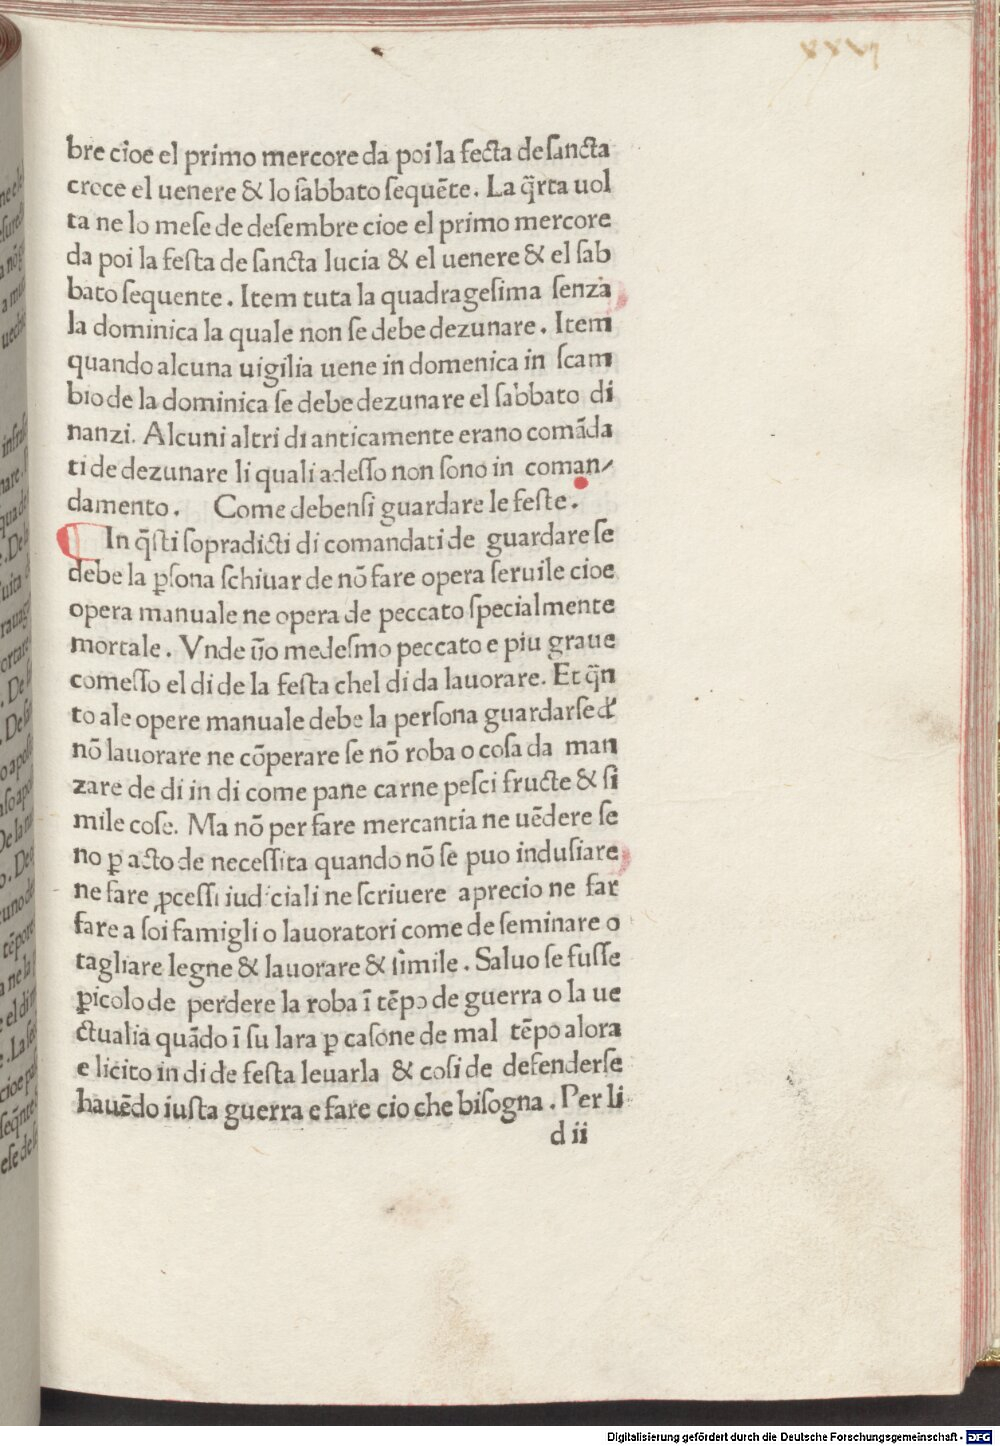 xxvj
bre cioe el primo mercore da poi la fecta de ſancta
croce el uenere & lo ſabbato ſequēte. La q̄rta uol
ta ne lo meſe de deſembre cioe el primo mercore
da poi la feſta de ſancta lucia & el uenere & el ſab
bato ſequente. Item tuta la quadrageſima ſenza
la dominica la quale non ſe debe dezunare. Item
quando alcuna uigilia uene in domenica in ſcam
bio de la dominica ſe debe dezunare el ſabbato di
nanzi. Alcuni altri di anticamente erano comāda
ti de dezunare li quali adeſſo non ſono in coman⸗
damento. Come debenſi guardare le feſte.
In q̄ſti ſopradicti di comandati de guardare ſe
debe la ꝑſona ſchiuar de nō fare opera ſeruile cioe
opera manuale ne opera de peccato ſpecialmente
mortale. Vnde ūo medeſmo peccato e piu graue
comeſſo el di de la feſta chel di da lauorare. Et q̄n
to ale opere manuale debe la perſona guardarſe d'
nō lauorare ne cōperare ſe nō roba o coſa da man
zare de di in di come pane carne peſci fructe & ſi
mile coſe. Ma nō per fare mercantia ne uēdere ſe
no ꝑ acto de neceſſita quando nō ſe puo induſiare
ne fare ꝓceſſi iudiciali ne ſcriuere a precio ne far
fare a ſoi famigli o lauoratori come de ſeminare o
tagliare legne & lauorare & ſimile. Saluo ſe fuſſe
ꝑicolo de perdere la roba ī tēpo de guerra o la ue
ctualia quādo ī ſu lara ꝑ caſone de mal tēpo alora
e licito in di de feſta leuarla & coſi de defenderſe
hauēdo iuſta guerra e fare cio che biſogna. Per li
d ii
Digitalisierung gefördert durch die Deutsche Forschungsgemeinschaft - DFG